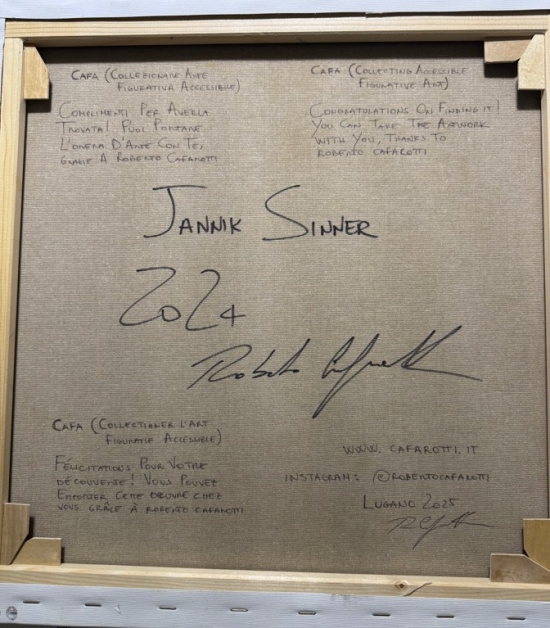 CAFA (COLLEZIONARE ARTE
FIGURATIVA ACCESSIBILE)
COMPLIMENTI PER AVERLA
TROVATA! PUOI PORTARE
L'OPERA D'ARTE CON TE,
GRAZIE A ROBERTO CAFAROTTI
CAFA (COLLECTING ACCESSIBLE
FIGURATIVE ART)
CONGRATULATIONS ON FINDING IT!
YOU CAN TAKE THE ARTWORK
WITH YOU, THANKS TO
ROBERTO CAFAROTTI
JANNIK SINNER
2024
Roberto Cafarotti
CAFA (COLLECTIONER L'ART
FIGURATIF ACCESSIBLE)
FÉLICITATIONS POUR VOTRE
DÉCOUVERTE! VOUS POUVEZ
EMPORTER CETTE ŒUVRE CHEZ
VOUS GRÂCE À ROBERTO CAFAROTTI
WWW.CAFAROTTI.IT
INSTAGRAM: @ROBERTOCAFAROTTI
LUGANO 2025